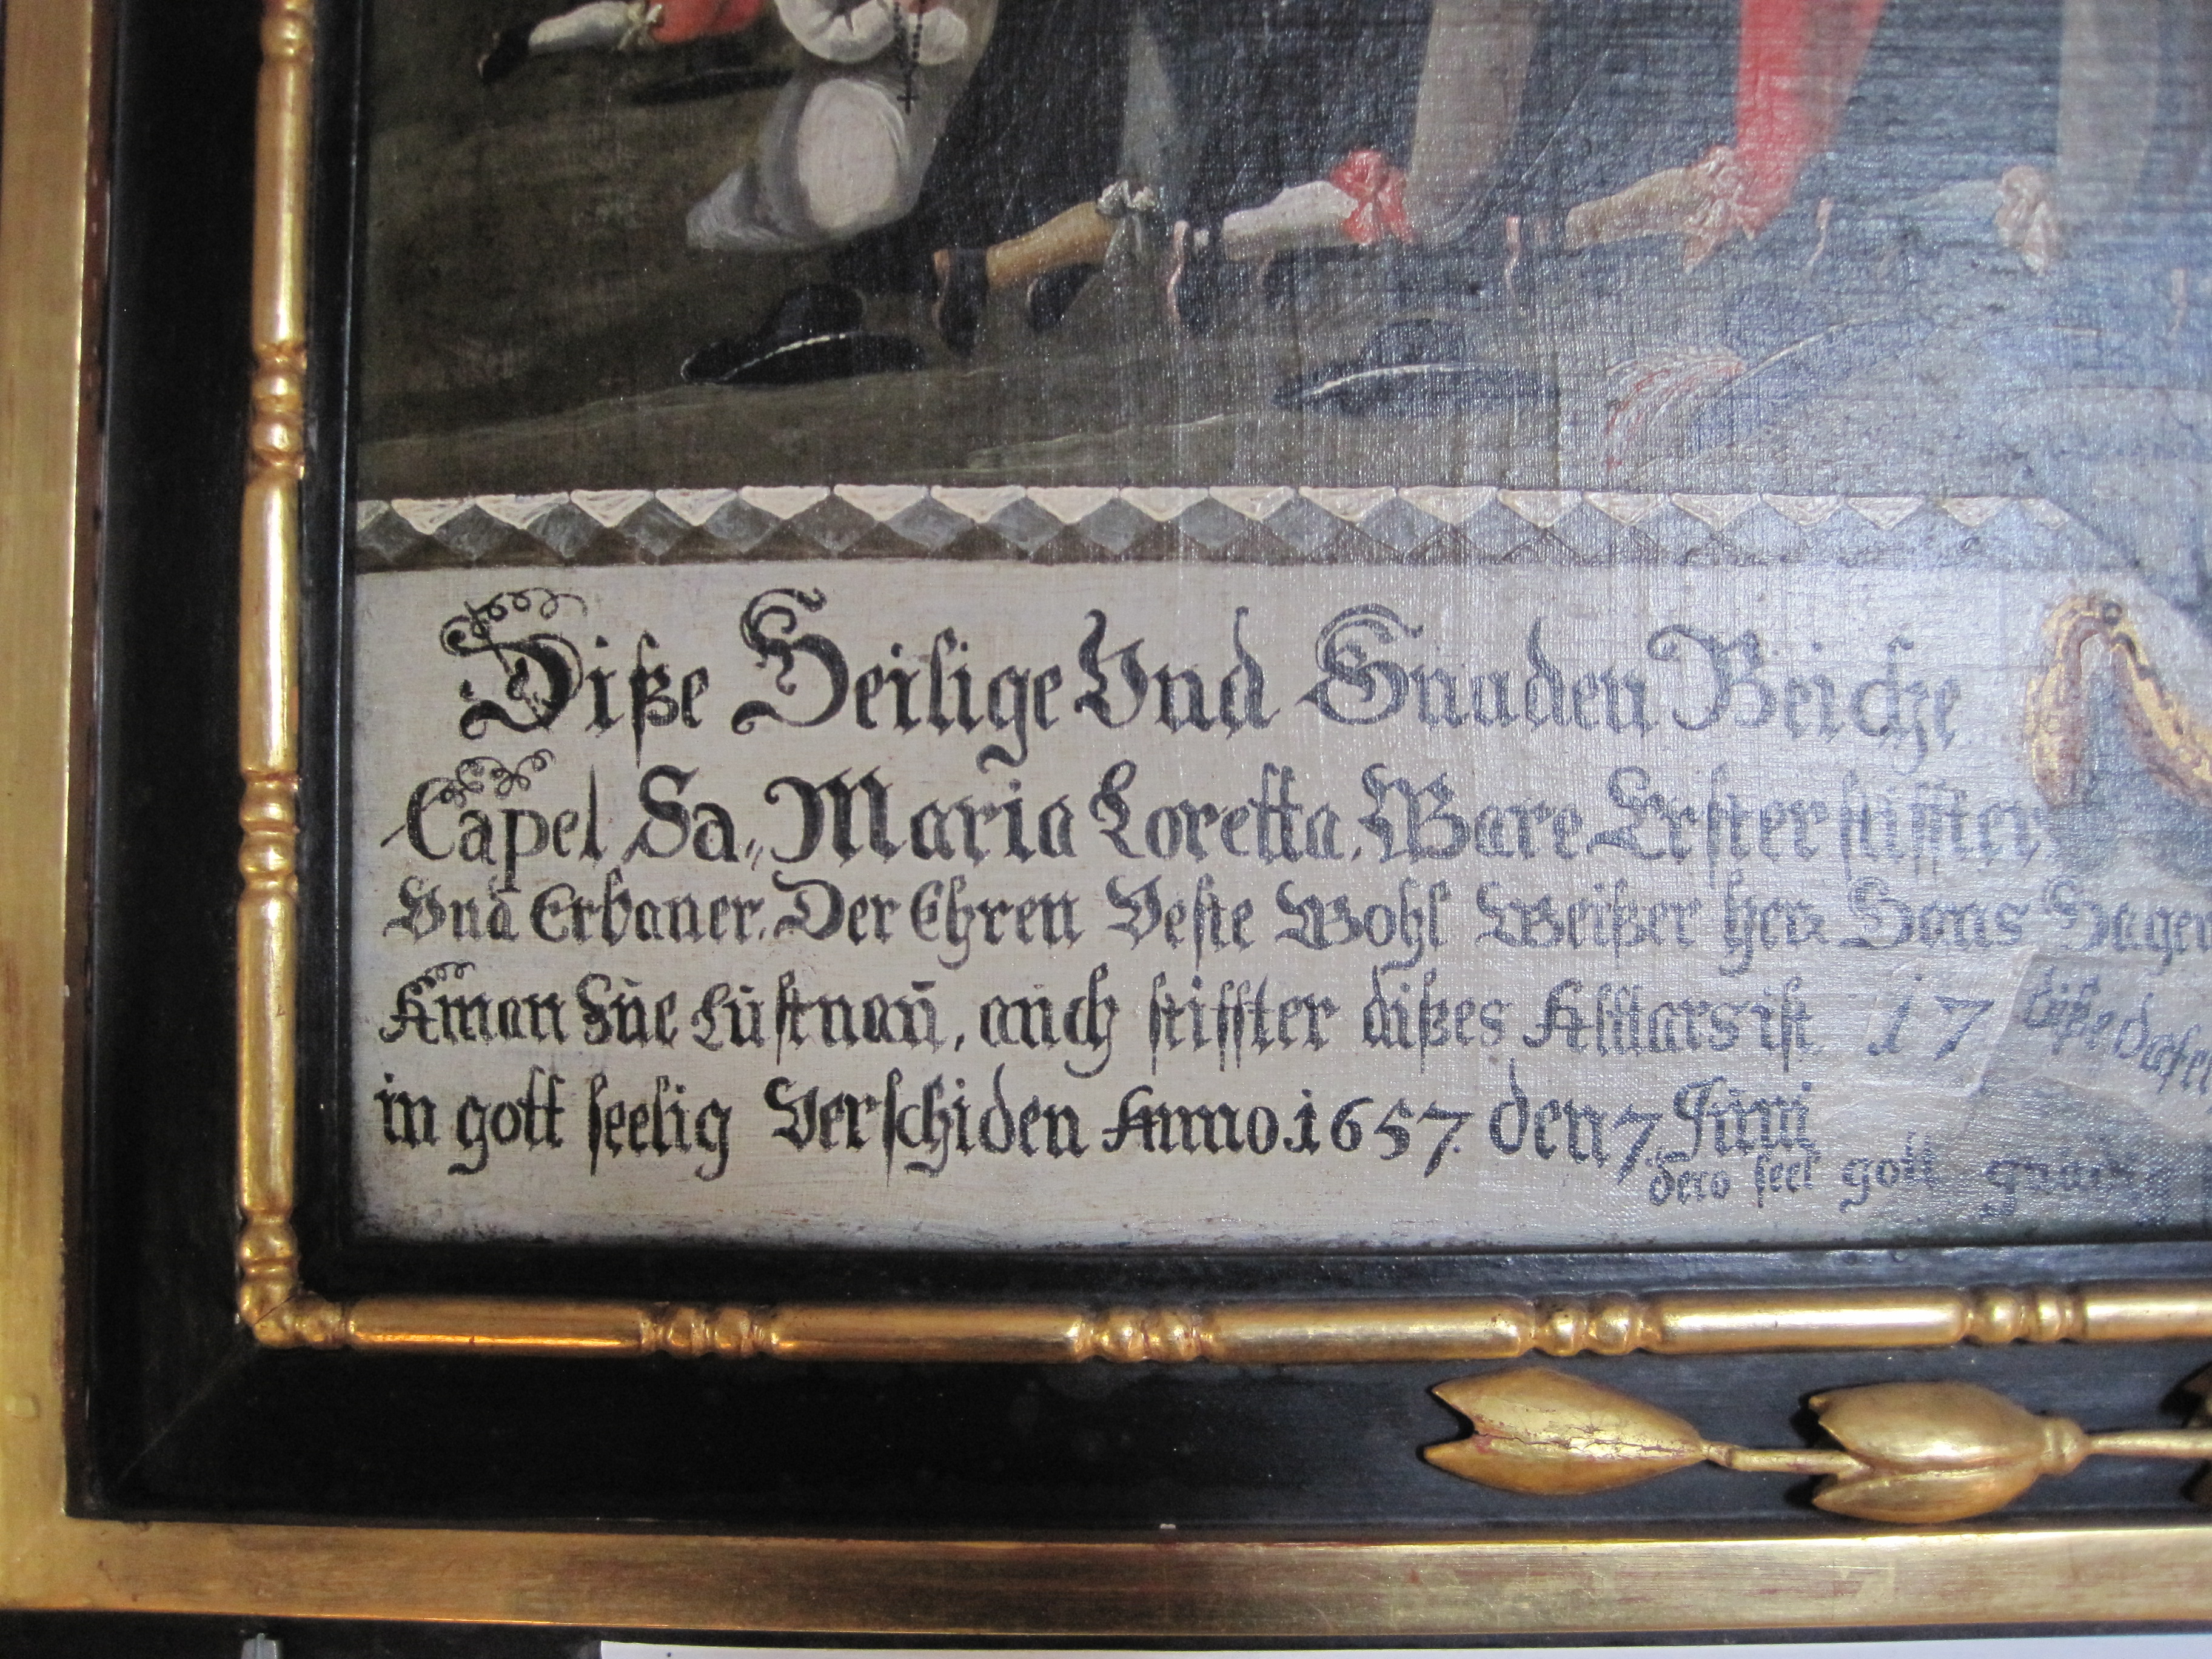 Diße Heilige Vnd Gnaden Reiche
Capel Sa,, Maria Loretta, Ware Erster stiffter,
Vnd Erbauer, Der Ehren Veste Wohl Weißer her Hans Hagen
Aman Zue Lustnau, auch stiffter dißes Alltars ist 17 diße dafel
in gott seelig Verschiden Anno 1657. den 7. Juni
deco seel gott gnadig